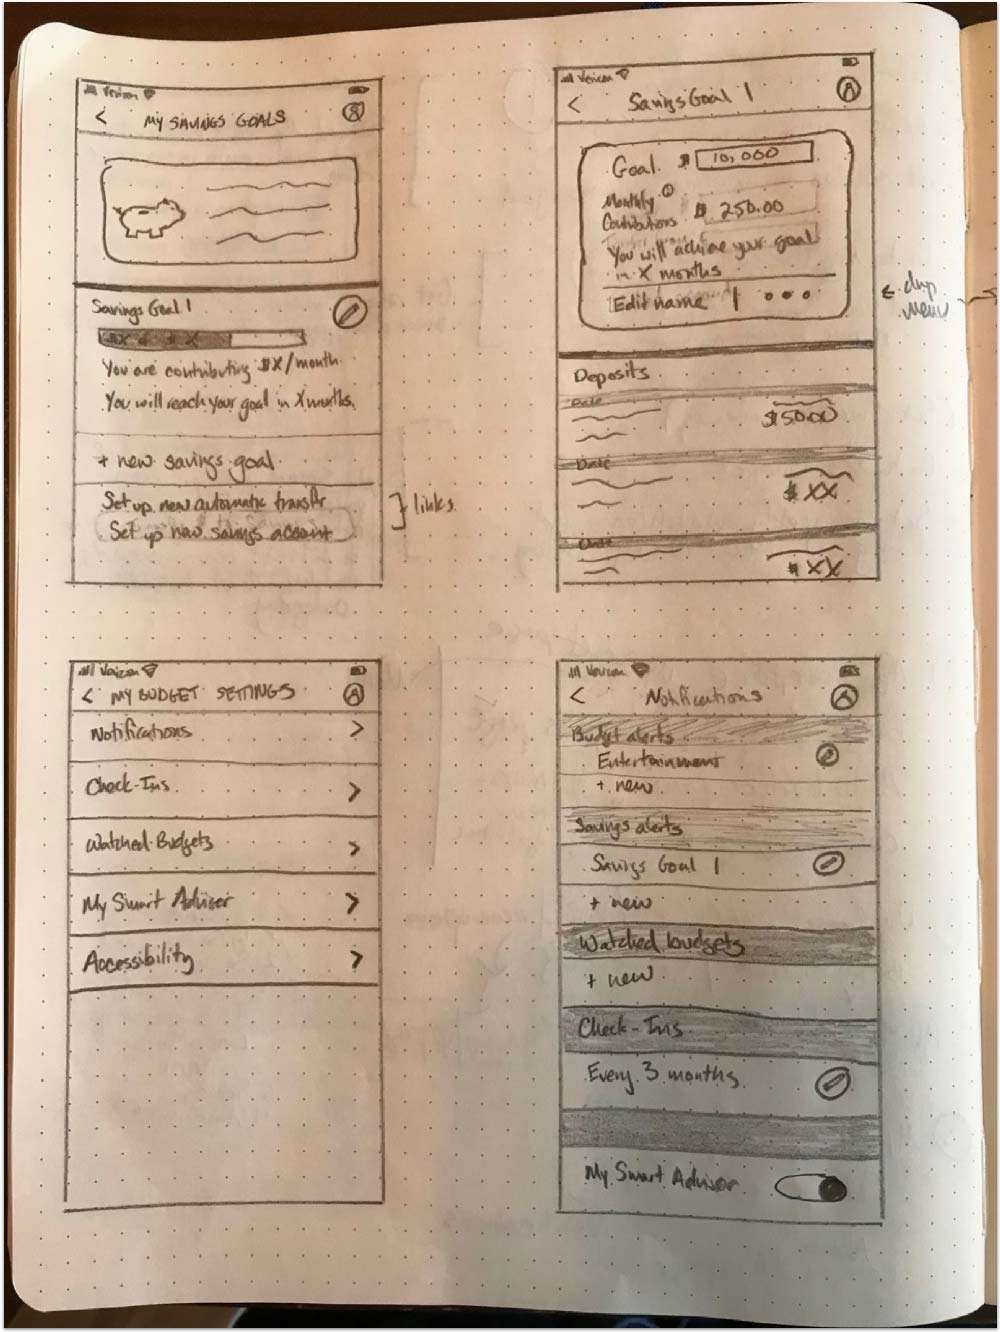 Verizon
< MY SAVINGS GOALS
Savings Goal 1
You are contributing $X/month
You will reach your goal in X months.
+ new savings goal
Set up new automatic transfr
Set up new savings account
} links
Verizon
< Savings Goal 1
Goal $ 10,000
Monthly
Contributions $ 250.00
You will achieve your goal
in X months
Edit name | • • •
← drop
menu
Deposits
Date
$50.00
Date
$ XX
Date
$ XX
Verizon
< MY BUDGET SETTINGS
Notifications >
Check-Ins >
Watched Budgets >
My Smart Advisor >
Accessibility >
Verizon
< Notifications
Budget alerts
Entertainment
+ new
Savings alerts
Savings Goal 1
+ new
Watched budgets
+ new
Check-Ins
Every 3 months
My Smart Advisor